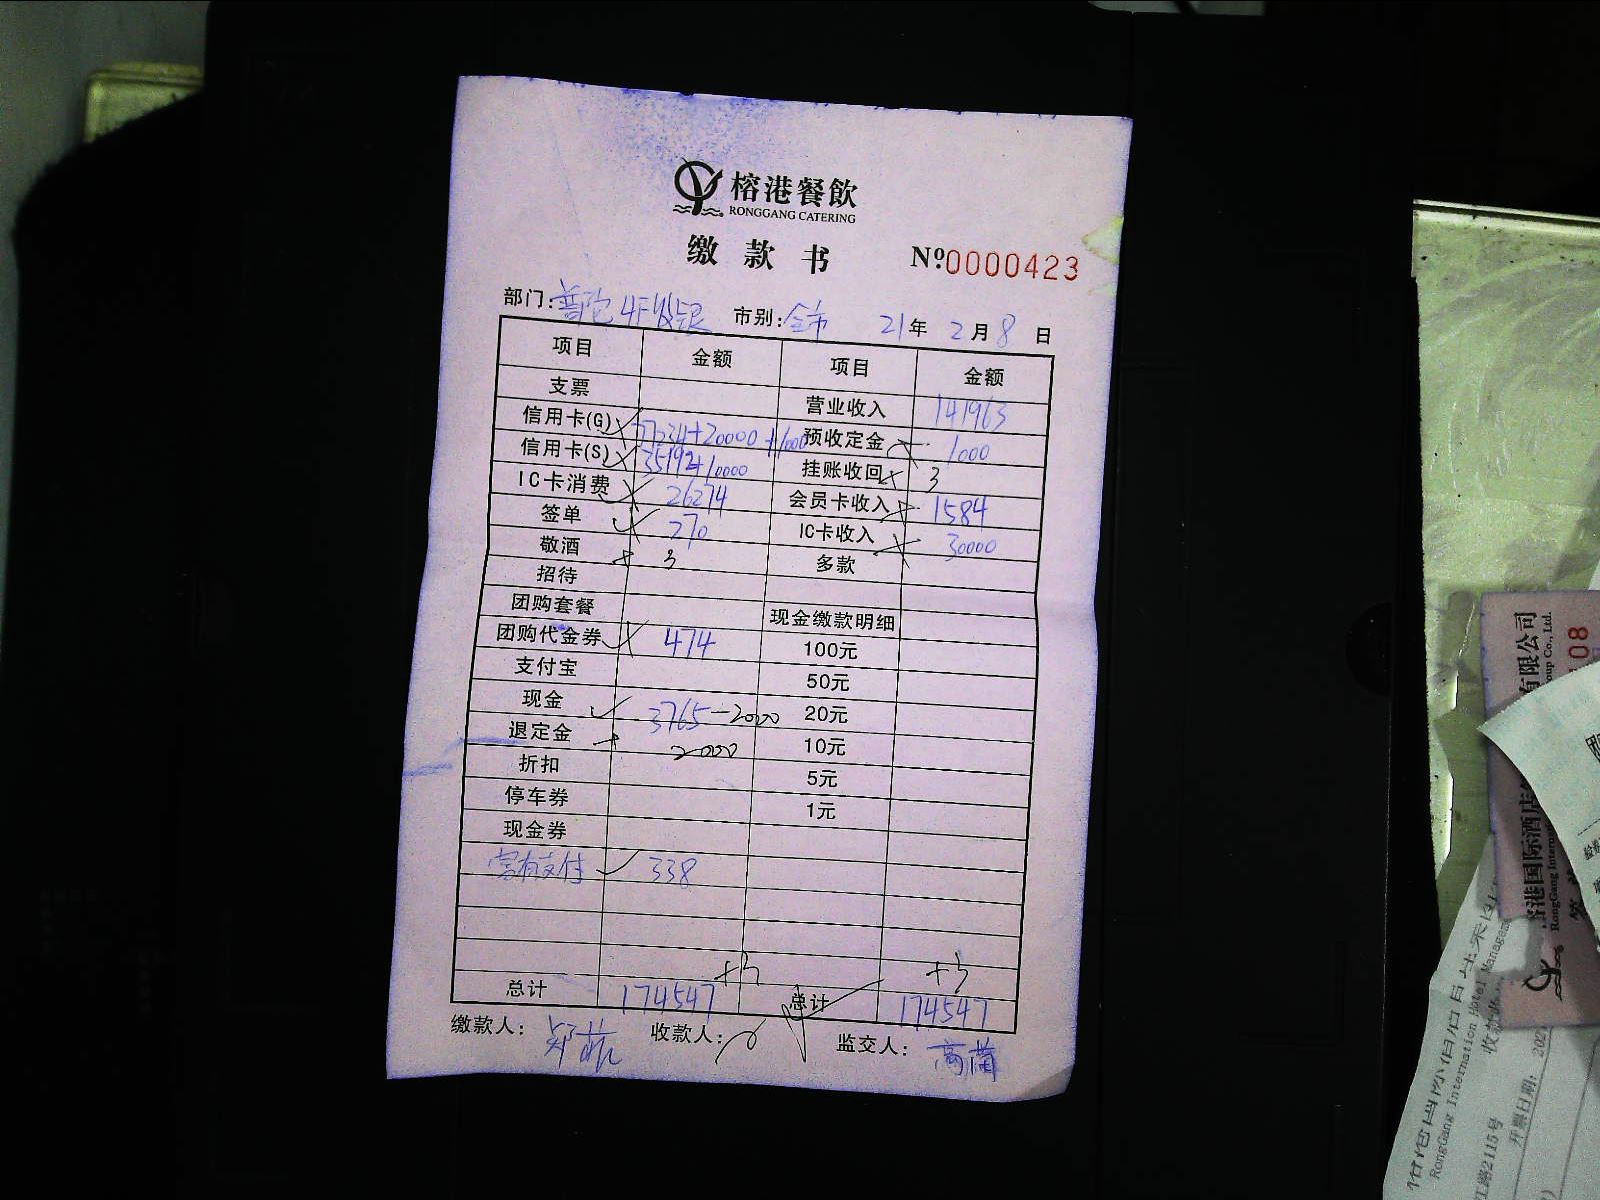 榕港餐飲
RONGGANG CATERING
缴款书 Nº0000423
部门:普陀4F发银 市别:全市 21年2月8日
项目 金额 项目 金额
支票 营业收入 141963
信用卡(G) 77234+20000+1000 预收定金 1000
信用卡(S) 35192+10000 挂账收回 3
IC卡消费 26274 会员卡收入 1584
签单 270 IC卡收入 30000
敬酒 3 多款
招待
团购套餐 现金缴款明细
团购代金券 474 100元
支付宝 50元
现金 3765-2000 20元
退定金 2000 10元
折扣 5元
停车券 1元
现金券
338
+3 +3
总计 174547 总计 174547
缴款人: 收款人: 监交人:高蘭
有限公司
oup Co., Ltd.
08
榕港国际酒店
RongGang Internat
RongGang International Hotel Managem
江路2115号
开票日期: 202